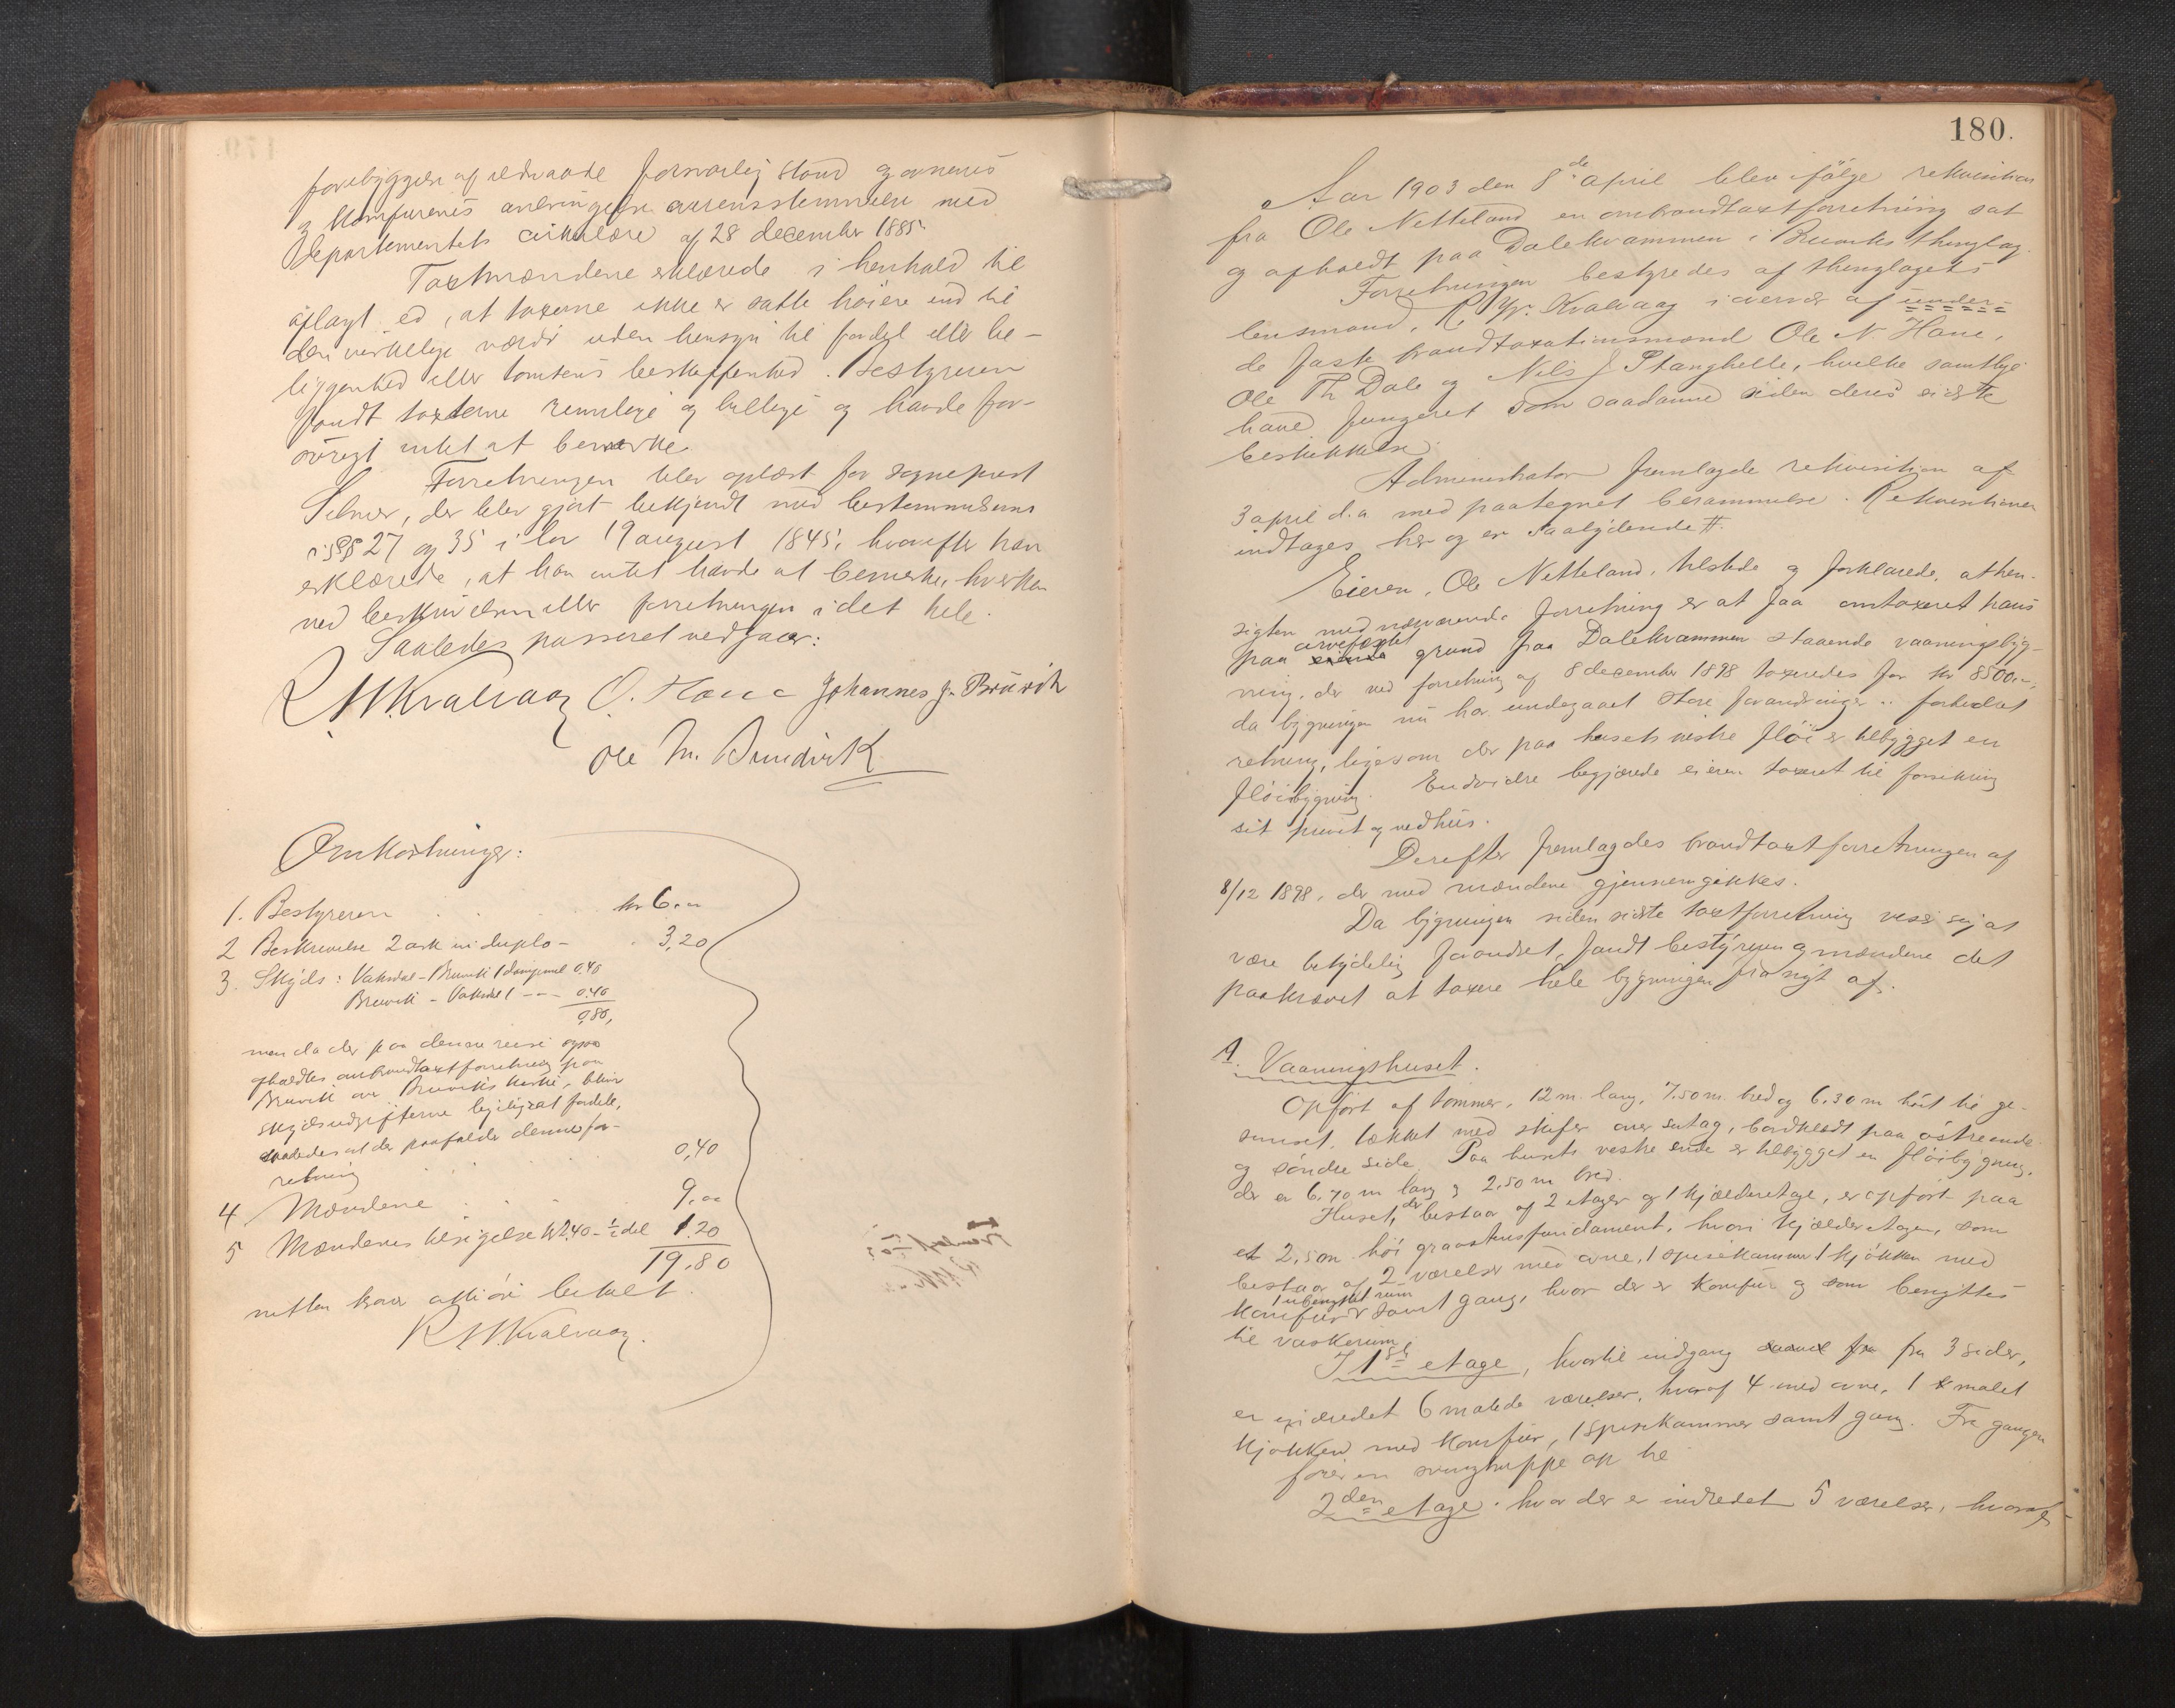 forebyggelse af ildvaade forsvarlig stand og ovnenes
og komfurenes anbringelse overensstemmelse med
departementets cirkulære af 28 december 1885.
Taxtmændene erklærede i henhold til
aflagt ed, at taxerne ikke er satte høiere end til
den virkelige værdi uden hensyn til fordel eller be-
liggenhed eller tomtens beskaffenhed. Bestyreren
fandt taxterne rimelige og billige og havde for-
øvrigt intet at bemærke.
Forretningen blev oplæst for sogneprest
Selmer, der blev gjort bekjendt med bestemmelserne
i §§ 27 og 35 i lov 19 august 1845, hvorefter han
erklærede, at han intet havde at bemerke, hverken
ved beskrivelsen eller forretningen i det hele.
Saaledes passeret vedgaar:
R M Kvalvaag O. Hane Johannes J. Bruvik
Ole M. Bruvik
Omkostninger:
1. Bestyreren kr 6.00
2 Beskrivelse 2 ark in duplo - 3,20
3. Skyds: Vaksdal - Bruvik 1 0,40
Bruvik - Vaksdal 1 - - 0.40
0,80,
men da der paa denne reise ogsaa
afholdtes ombrandtaxtforretning paa
Bruvik over Bruviks kirke, blir
skydsudgifterne ligeligt fordelt,
saaledes at der paafalder denne for-
retning 0,40
4 Mændene 9.00
5 Mændenes tilsigelse kr 2.40 - 1/2 del 1.20
19.80
nitten kroner otti øre betalt.
R M Kvalvaag.
180.
Aar 1903 den 8de april blev ifølge rekvisition
fra Ole Netteland en ombrandtaxtforretning sat
og afholdt paa Dalekvammen i Bruviks thinglag.
Forretningen bestyredes af thinglagets
lensmand, R. M. Kvalvaag i overvær af under-
de faste brandtaxationsmænd Ole N. Hane,
Ole Th Dale og Nils J Stanghelle, hvilke samtlige
have fungeret som saadanne siden deres sidste
beskikkelse.
Administrator fremlagde rekvisition af
3 april d.a med paategnet berammelse. Rekvisitionen
indtages her og er saalydende #.
Eieren, Ole Netteland, tilstede og forklarede, at hen-
sigten med nærværende forretning er at faa omtaxeret hans
paa arvefæstet grund paa Dalekvammen staaende vaaningsbyg-
ning, der ved forretning af 8 december 1898 taxeredes for kr 8500.00,
da bygningen nu har undergaaet store forandringer i forbedret
retning, ligesom der paa husets vestre fløi er tilbygget en
fløibygning. Endvidere begjærede eieren taxeret til forsikring
sit privet og vedhus.
Derefter fremlagdes brandtaxtforretningen af
8/12 1898, der med mændene gjennemgikkes.
Da bygningen siden sidste taxtforretning viser sig at
være betydelig forandret, fandt bestyreren og mændene det
paakrævet at taxere hele bygningen paa nyt af.
A. Vaaningshuset.
Opført af tømmer, 12 m. lang, 7.50 m. bred og 6.30 m høit til ge-
simset, tækket med skifer over sutag, bordklædt paa østre ende
og søndre side. Paa husets vestre ende er tilbygget en fløibygning,
der er 6.70 m lang og 2.50 m bred.
Huset, der bestaar af 2 etager og 1 kjælderetage, er opført paa
et 2,50 m høi graastensfundament, hvori kjælderetagen, som
bestaar af 2 værelser med ovne, 1 spisekammer 1 kjøkken med
komfur 1 ubenyttet rum samt gang, hvor der er komfur og som benyttes
til vaskerum.
I 1ste etage, hvortil indgang fra 3 sider,
er indredet 6 malede værelser, hvoraf 4 med ovne, 1 malet
kjøkken med komfur, 1 spisekammer samt gang. Fra gangen
fører en svingtrappe op til
2den etage. hvor der er indredet 5 værelser, hvoraf